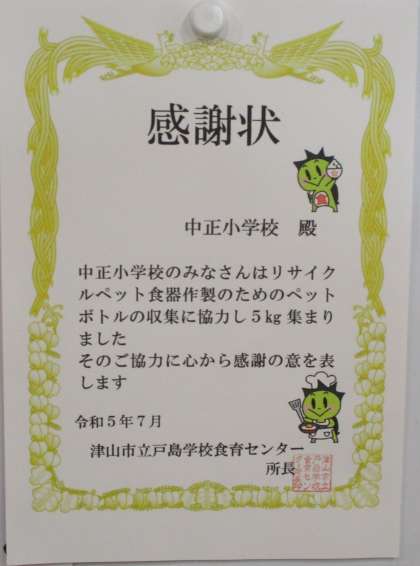 感謝状
中正小学校 殿
中正小学校のみなさんはリサイク
ルペット食器作製のためのペット
ボトルの収集に協力し5kg集まり
ました
そのご協力に心から感謝の意を表
します
令和5年7月
津山市立戸島学校食育センター
所長
食